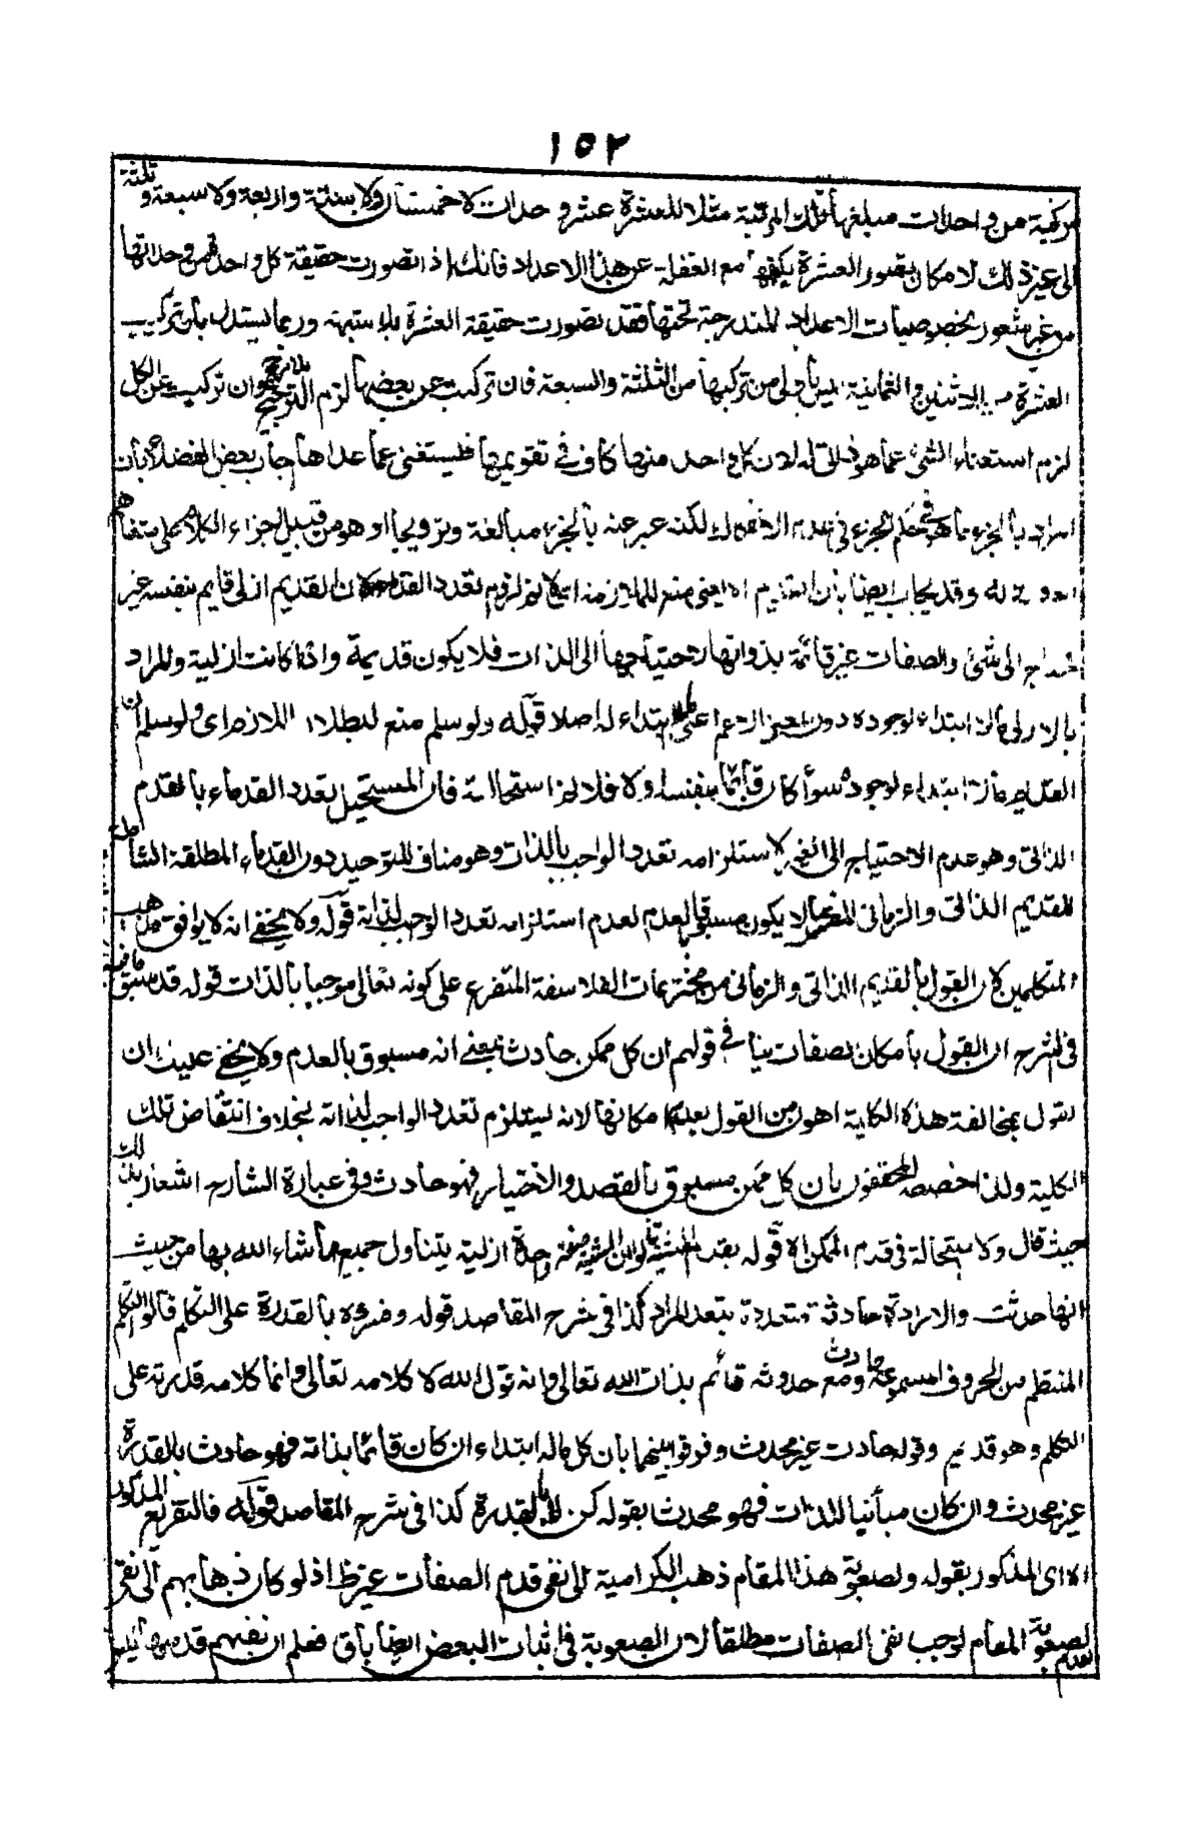 ١٥٢
مركبة من واحدات مبلغها تلك المرتبة مثلا للعشرة عشر وحدات لا خمستان ولا ستة واربعة ولا سبعة وثلثة
الى غير ذلك لامكان تصور العشرة بكنهها مع الغفلة عن هذا الاعداد فانك اذا تصورت حقيقة كل واحدة من وحداتها
من غير شعور بخصوصيات الاعداد المندرجة تحتها فقد تصورت حقيقة العشرة بلا شبهة وربما يستدل بان تركيب
العشرة من الاثنين والثمانية ليس باولى من تركبها من الثلثة والسبعة فان تركبت عن بعضها لزم الترجيح بلا مرجح وان تركبت عن الكل
لزم استغناء الشئ عما هو ذاتى له لان كل واحد منها كاف في تقويمها فليستغنى عما عداها اجاب بعض الفضلاء بان
المراد بالجزء ما هو في حكم الجزء في عدم الانفكاك لكنه عبر عنه بالجزء مبالغة وترويجا او هو من قبيل اجراء الكلام على متفاهم
وقد يجاب ايضا بان القديم اه يعنى منع للملازمة اى لا نم لزوم تعدد القدماء لان القديم ازلى قايم بنفسه غير
محتاج الى شئ والصفات غير قائمة بذواتها لاحتياجها الى الذات فلا يكون قديمة واذا كانت ازلية والمراد
بالازلى مالا ابتداء لوجوده دون المعنى الاعم اعنى مالا ابتداء له اصلا قوله ولو سلم منع لبطلان اللازم اى ولو سلم ان
القديم مالا ابتداء لوجوده سواء كان قائما بنفسه اولا فلا نم استحالته فان المستحيل تعدد القدماء بالقدم
الذاتى وهو عدم الاحتياج الى الغير لاستلزامه تعدد الواجب بالذات وهو مناف للتوحيد دون القدماء المطلقة الشاملة
للقديم الذاتى والزمانى لا يكون مسبوقا بالعدم لعدم استلزامه تعدد الواجب لذاته قوله ولا يخفى انه لا يوافق مذهب
المتكلمين لان القول بالقديم الذاتى والزمانى من مخترعات الفلاسفة المتفرع على كونه تعالى موجبا بالذات قوله قد سبق ما فيه
في الشرح ان القول بامكان الصفات ينافي قولهم ان كل ممكن حادث بمعنى انه مسبوق بالعدم ولا يخفى عليك ان
القول بمخالفة هذه الكلية اهون من القول بعدم امكانها لانه يستلزم تعدد الواجب لذاته بخلاف انتقاض تلك
الكلية ولذا خصصه المحققون بان كل ممكن مسبوق بالقصد والاختيار فهو حادث وفي عبارة الشارح اشعار بذلك
حيث قال ولا استحالة في قدم الممكن اه قوله بقدم المشية قالوا ان المشية صفة واحدة ازلية يتناول جميع ما شاء الله بها من حيث
انها حدثت والارادة حادثة متعددة بتعدد المراد كذا في شرح المقاصد قوله وفسروه بالقدرة على التكلم قالوا التكلم
المنتظم من الحروف المسموعة حادث ومع حدوثه قائم بذات الله تعالى وانه قول الله لا كلامه تعالى وانما كلامه قدرته على
التكلم وهو قديم وقوله حادث غير محدث وفرقوا بينهما بان كل ماله ابتداء ان كان قائما بذاته فهو حادث بالقدرة
غير محدث وان كان مباينا للذات فهو محدث بقوله كن لا بالقدرة كذا في شرح المقاصد قوله فالتفريع المذكور
اه اى المذكور بقوله ولصعوبة هذا المقام ذهب الكرامية الى نفى قدم الصفات غير ظ اذ لو كان ذهابهم الى نفى
لصعوبة المقام لوجب نفى الصفات مطلقا لان الصعوبة في اثبات البعض ايضا باق فعلم ان نفيهم قدمها ليس